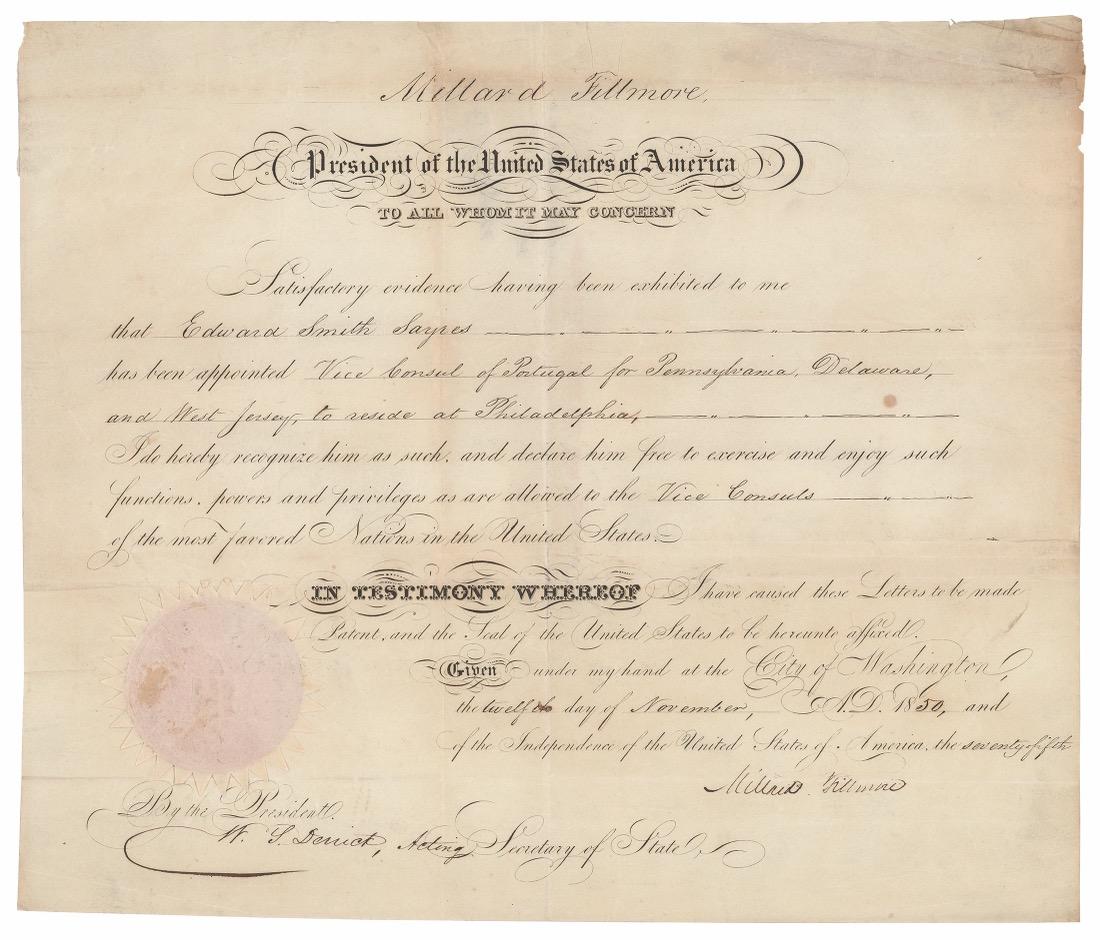 Millard Fillmore,
President of the United States of America
TO ALL WHOM IT MAY CONCERN
Satisfactory evidence having been exhibited to me
that Edward Smith Sayres
has been appointed Vice Consul of Portugal for Pennsylvania, Delaware,
and West Jersey, to reside at Philadelphia,
I do hereby recognize him as such, and declare him free to exercise and enjoy such
functions, powers and privileges as are allowed to the Vice Consuls
of the most favored Nations in the United States.
IN TESTIMONY WHEREOF I have caused these Letters to be made
Patent, and the Seal of the United States to be hereunto affixed.
Given under my hand at the City of Washington,
the twelfth day of November, A.D. 1850, and
of the Independence of the United States of America, the seventy fifth
Millard Fillmore
By the President,
W. S. Derrick, Acting Secretary of State,